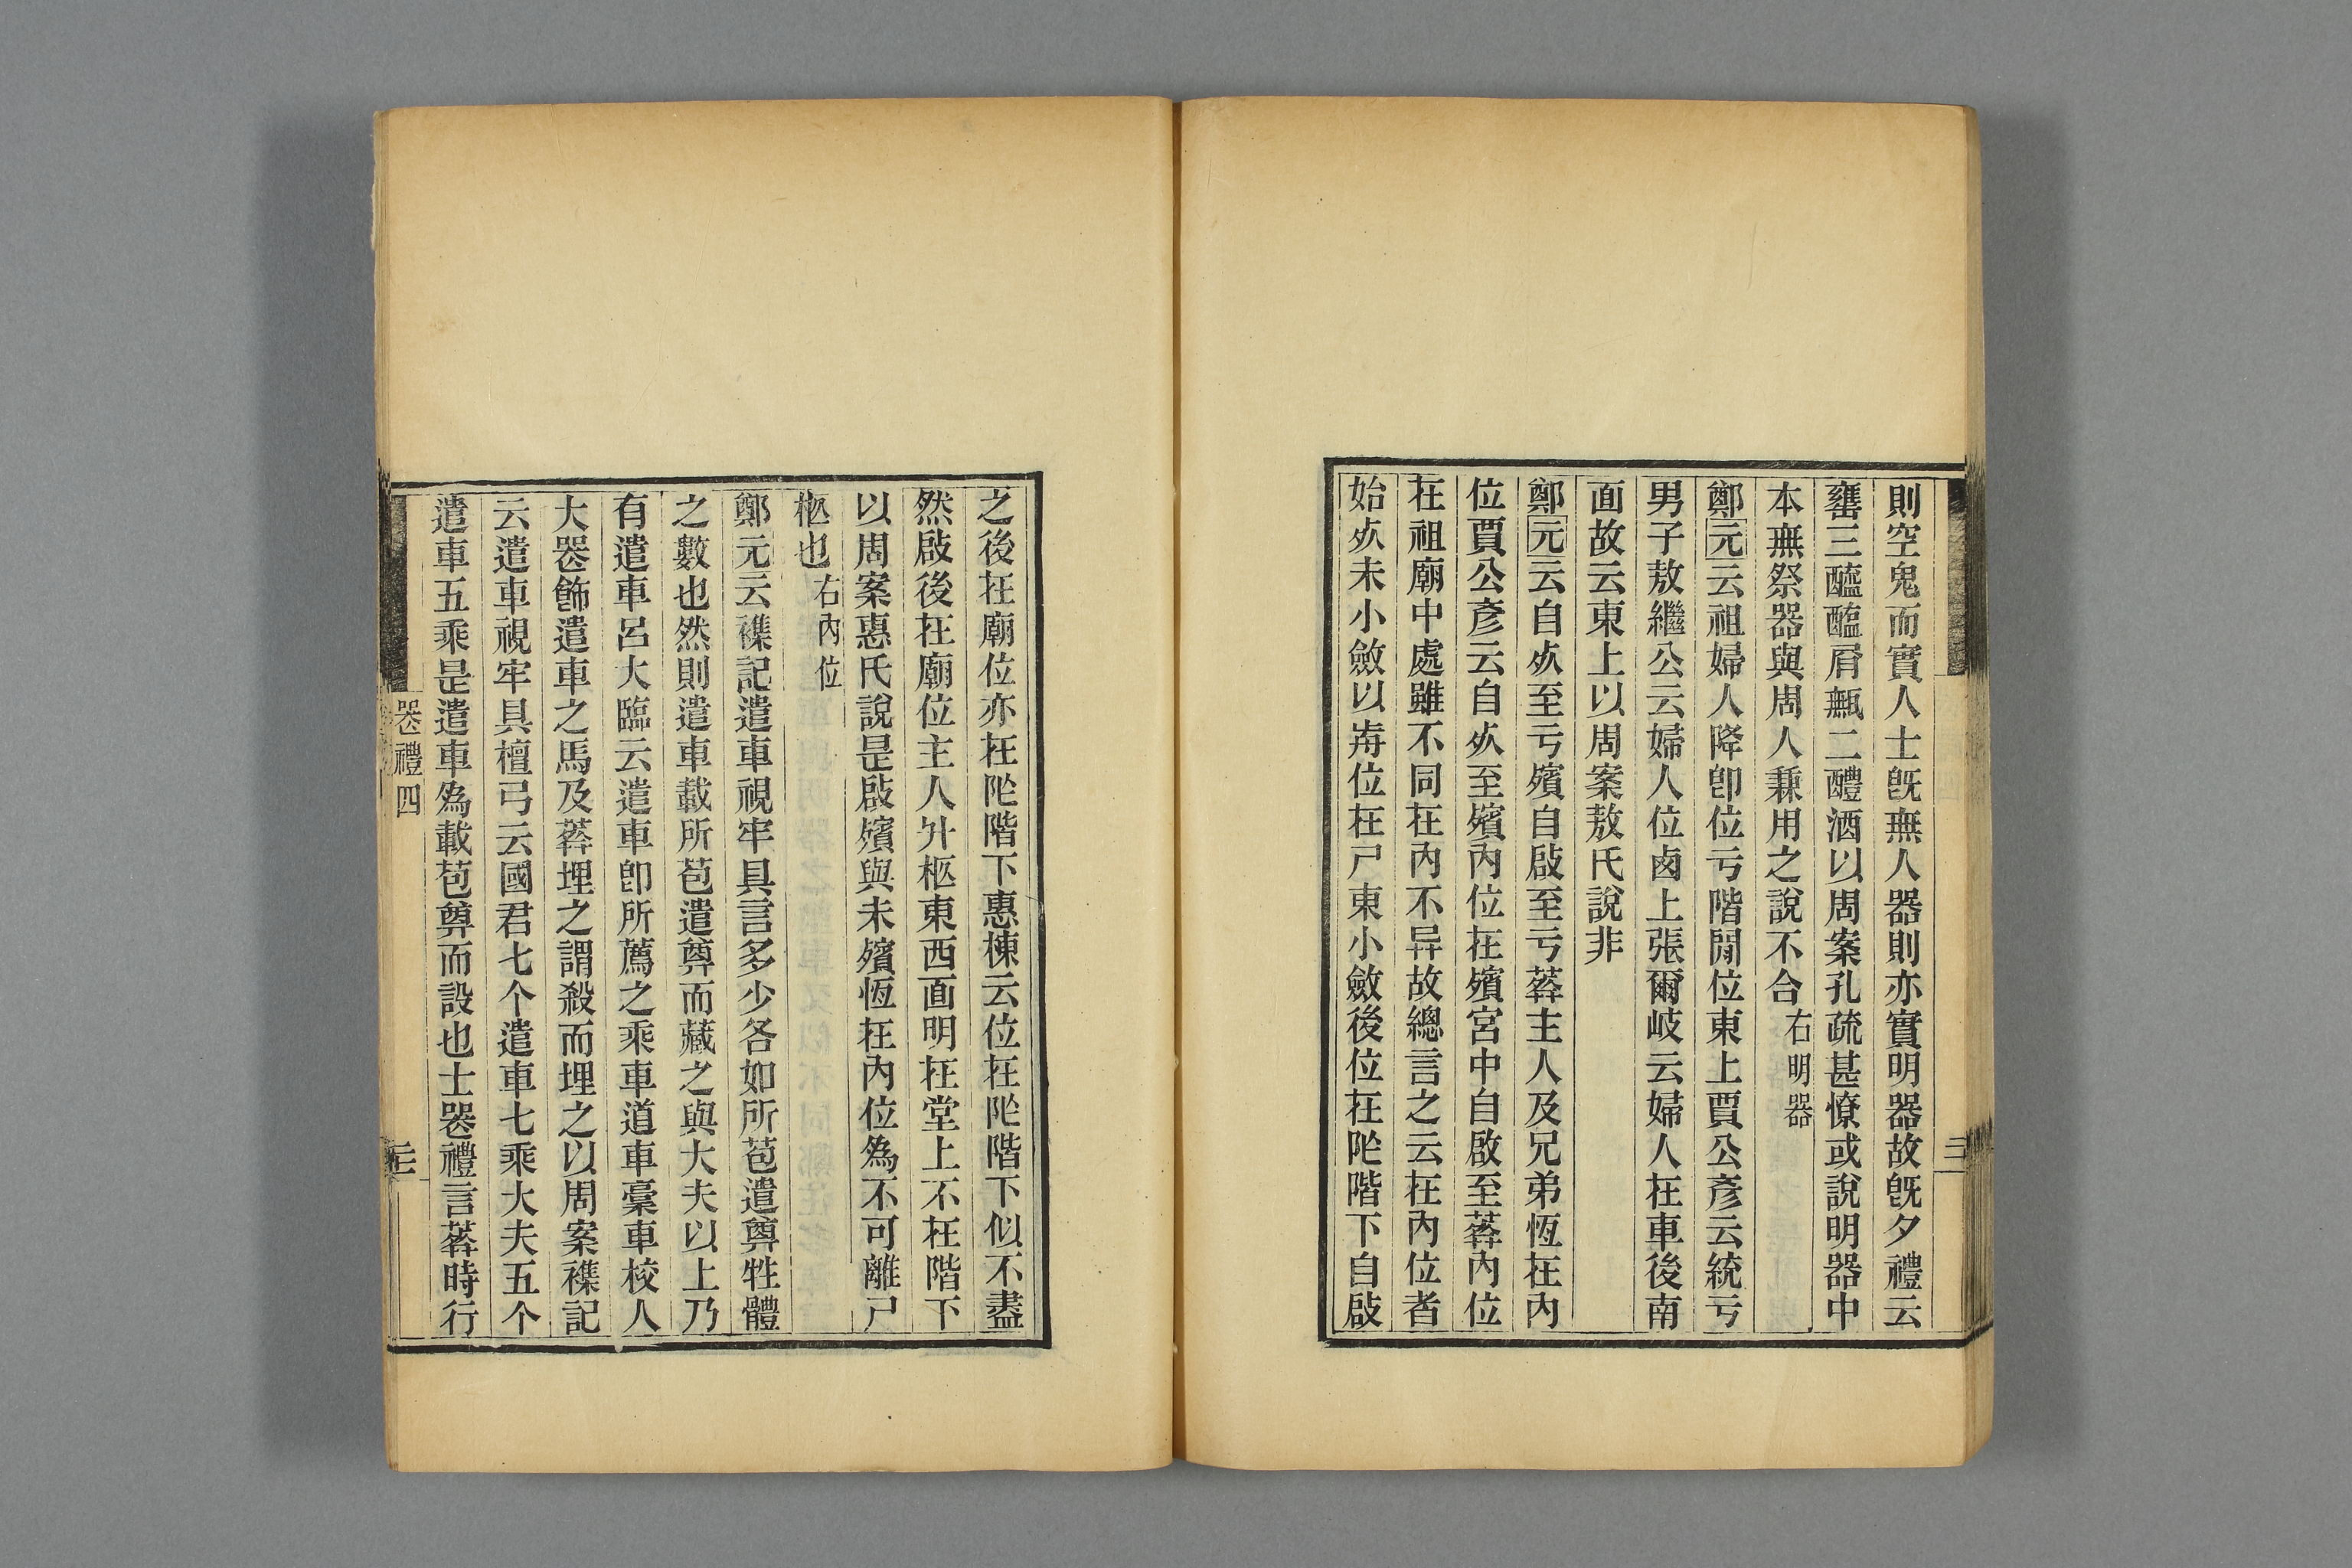 則空鬼而實人士旣無人器則亦實明器故旣夕禮云
罋三醯醢屑甒二醴酒以周案孔疏甚憭或說明器中
本無祭器與周人兼用之說不合右明器
鄭元云祖婦人降卽位亏階閒位東上賈公彥云統亏
男子敖繼公云婦人位鹵上張爾岐云婦人在車後南
面故云東上以周案敖氏說非
鄭元云自㱙至亏殯自啟至亏葬主人及兄弟恆在內
位賈公彥云自㱙至殯內位在殯宮中自啟至葬內位
在祖廟中處雖不同在內不异故總言之云在內位者
始㱙未小斂以歬位在尸東小斂後位在阼階下自啟
之後在廟位亦在阼階下惠棟云位在阼階下似不盡
然啟後在廟位主人升柩東西面明在堂上不在階下
以周案惠氏說是啟殯與未殯恆在內位爲不可離尸
柩也右內位
鄭元云襍記遣車視牢具言多少各如所苞遣奠牲體
之數也然則遣車載所苞遣奠而藏之與大夫以上乃
有遣車呂大臨云遣車卽所薦之乘車道車槀車校人
大喪飾遣車之馬及葬埋之謂殺而埋之以周案襍記
云遣車視牢具檀弓云國君七个遣車七乘大夫五个
遣車五乘是遣車爲載苞奠而設也士喪禮言葬時行
喪禮四